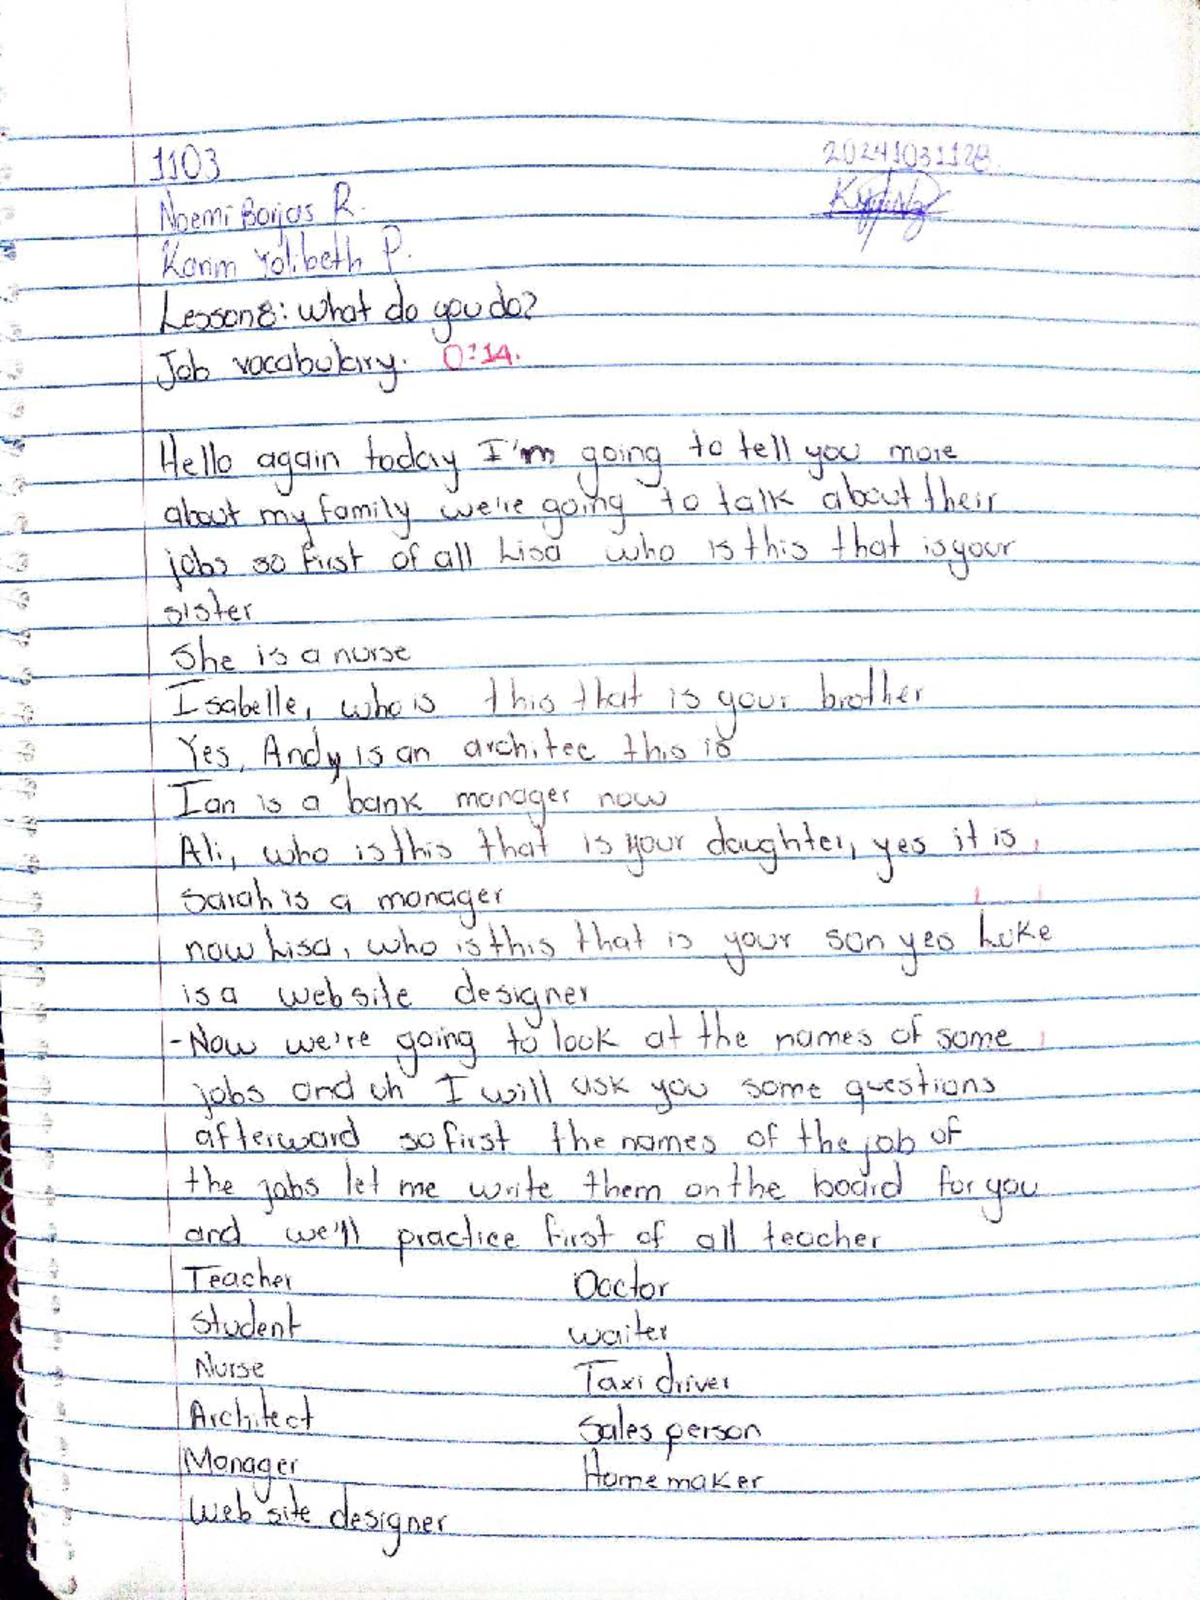 1103 20241031128
Noemi Borjas R.
Karim Yolibeth P.
Lesson 8: what do you do?
Job vocabulary. 0:14.
Hello again today I'm going to tell you more
about my family we're going to talk about their
jobs so first of all Lisa who is this that is your
sister
She is a nurse
Isabelle, who is this that is your brother
Yes, Andy is an architec this is
Ian is a bank manager now
Ali, who is this that is your daughter, yes it is
Sarah is a manager
now Lisa, who is this that is your son yes Luke
is a website designer
- Now we're going to look at the names of some
jobs and uh I will ask you some questions
afterward so first the names of the job of
the jobs let me write them on the board for you
and we'll practice first of all teacher
Teacher Doctor
Student waiter
Nurse Taxi driver
Architect Sales person
Manager Home maker
Web site designer